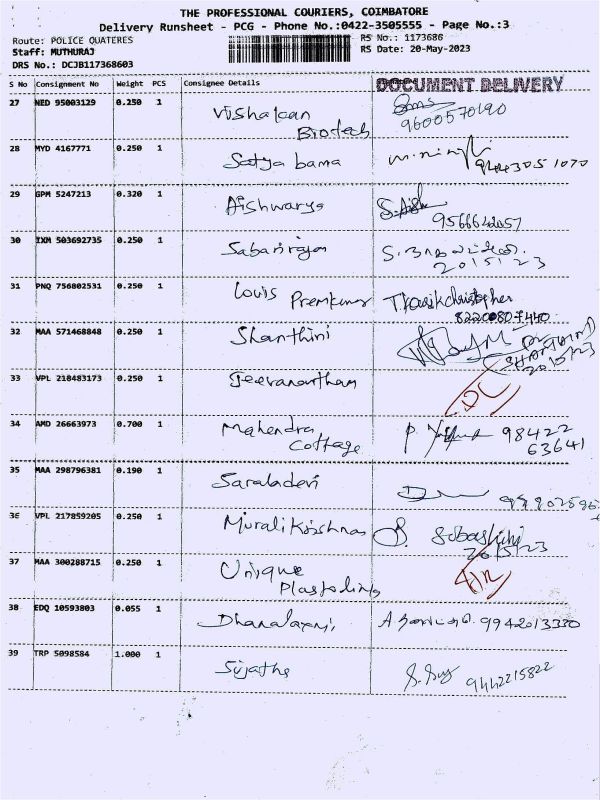 THE PROFESSIONAL COURIERS, COIMBATORE
Delivery Runsheet - PCG - Phone No.:0422-3505555 - Page No.:3
Route: POLICE QUATERES
RS No.: 1173686
Staff: MUTHURAJ
RS Date: 20-May-2023
DRS No.: DCJB117368603
S No Consignment No Weight PCS Consignee Details DOCUMENT DELIVERY
27 NED 95003129 0.250 1 Vishalcan Biotech
9600570190
28 MYD 4167771 0.250 1 Satya bama
29 GPM 5247213 0.320 1 Aishwarya
30 IXM 503692735 0.250 1 Sabarirajan
31 PNQ 756802531 0.250 1 Louis Premkumar
32 MAA 571468848 0.250 1 Shanthini
20/5/23
33 VPL 218483173 0.250 1 Jeevanantham
34 AMD 26663973 0.700 1 Mahendra Cottage
98422
63641
35 MAA 298796381 0.190 1 Saraladevi
36 VPL 217859205 0.250 1 Murali Krishnan
20/5/23
37 MAA 300288715 0.250 1 Unique
38 EDQ 10593803 0.055 1 Dhanalaxmi 9942013330
39 TRP 5098584 1.000 1 Sujatha 9442215822